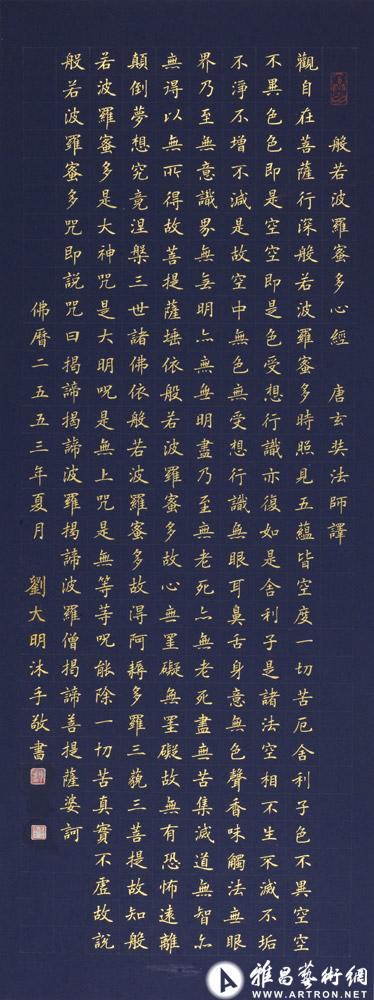 般若波羅蜜多心經 唐玄奘法師譯
觀自在菩薩行深般若波羅蜜多時照見五蘊皆空度一切苦厄舍利子色不異空空
不異色色即是空空即是色受想行識亦復如是舍利子是諸法空相不生不滅不垢
不淨不增不減是故空中無色無受想行識無眼耳鼻舌身意無色聲香味觸法無眼
界乃至無意識界無無明亦無無明盡乃至無老死亦無老死盡無苦集滅道無智亦
無得以無所得故菩提薩埵依般若波羅蜜多故心無罣礙無罣礙故無有恐怖遠離
顛倒夢想究竟涅槃三世諸佛依般若波羅蜜多故得阿耨多羅三藐三菩提故知般
若波羅蜜多是大神咒是大明呪是無上咒是無等等呪能除一切苦真實不虛故說
般若波羅蜜多咒即說咒曰揭諦揭諦波羅揭諦波羅僧揭諦菩提薩婆訶
佛曆二五五三年夏月 劉大明沐手敬書
雅昌藝術網
WWW.ARTRON.NET